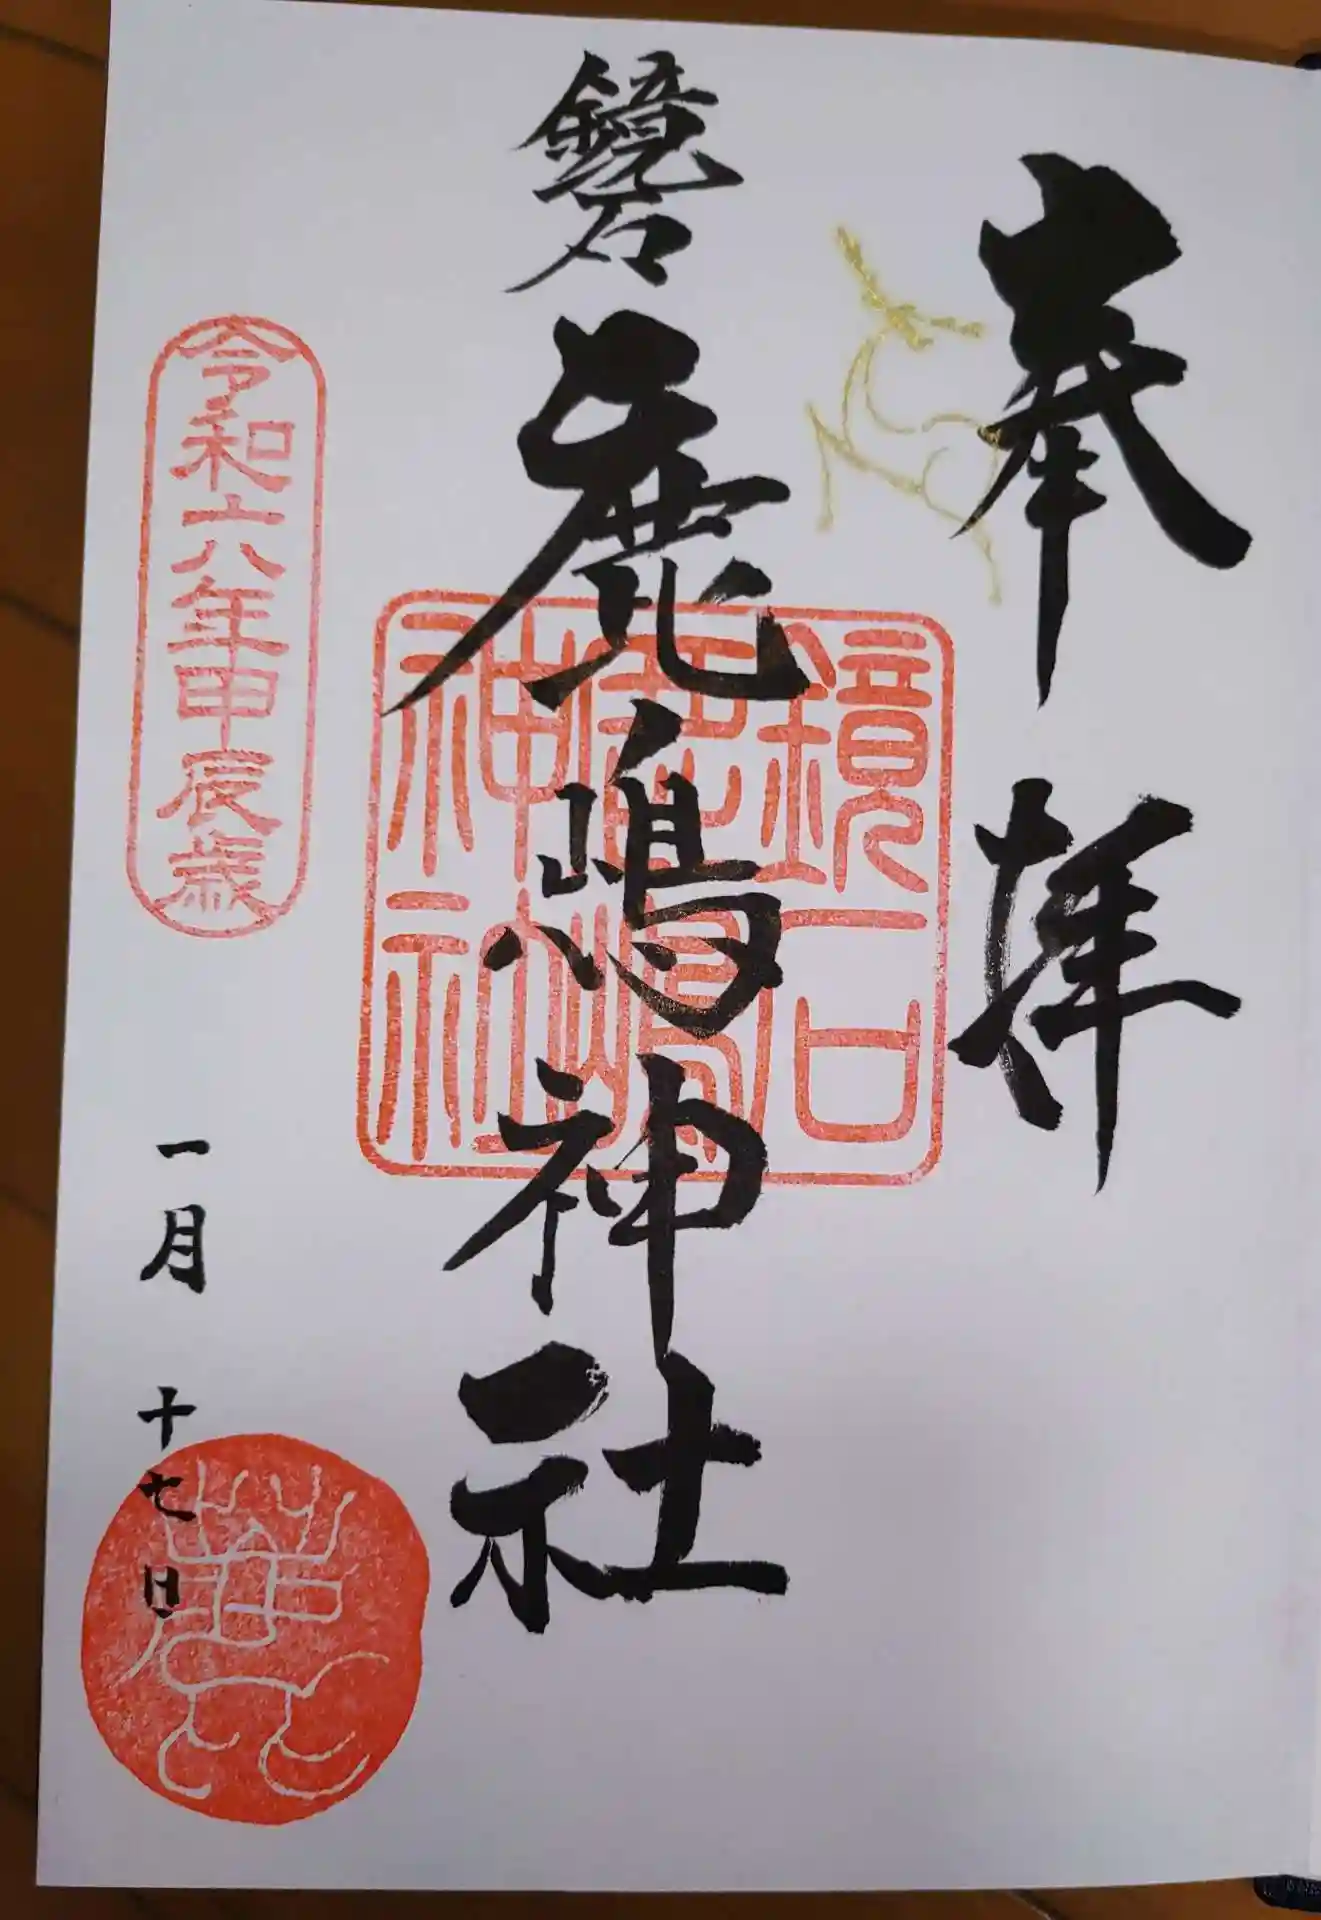 奉拝
鏡石
鹿嶋神社
鏡石
鹿嶋
神社
令和六年甲辰歳
一月十七日